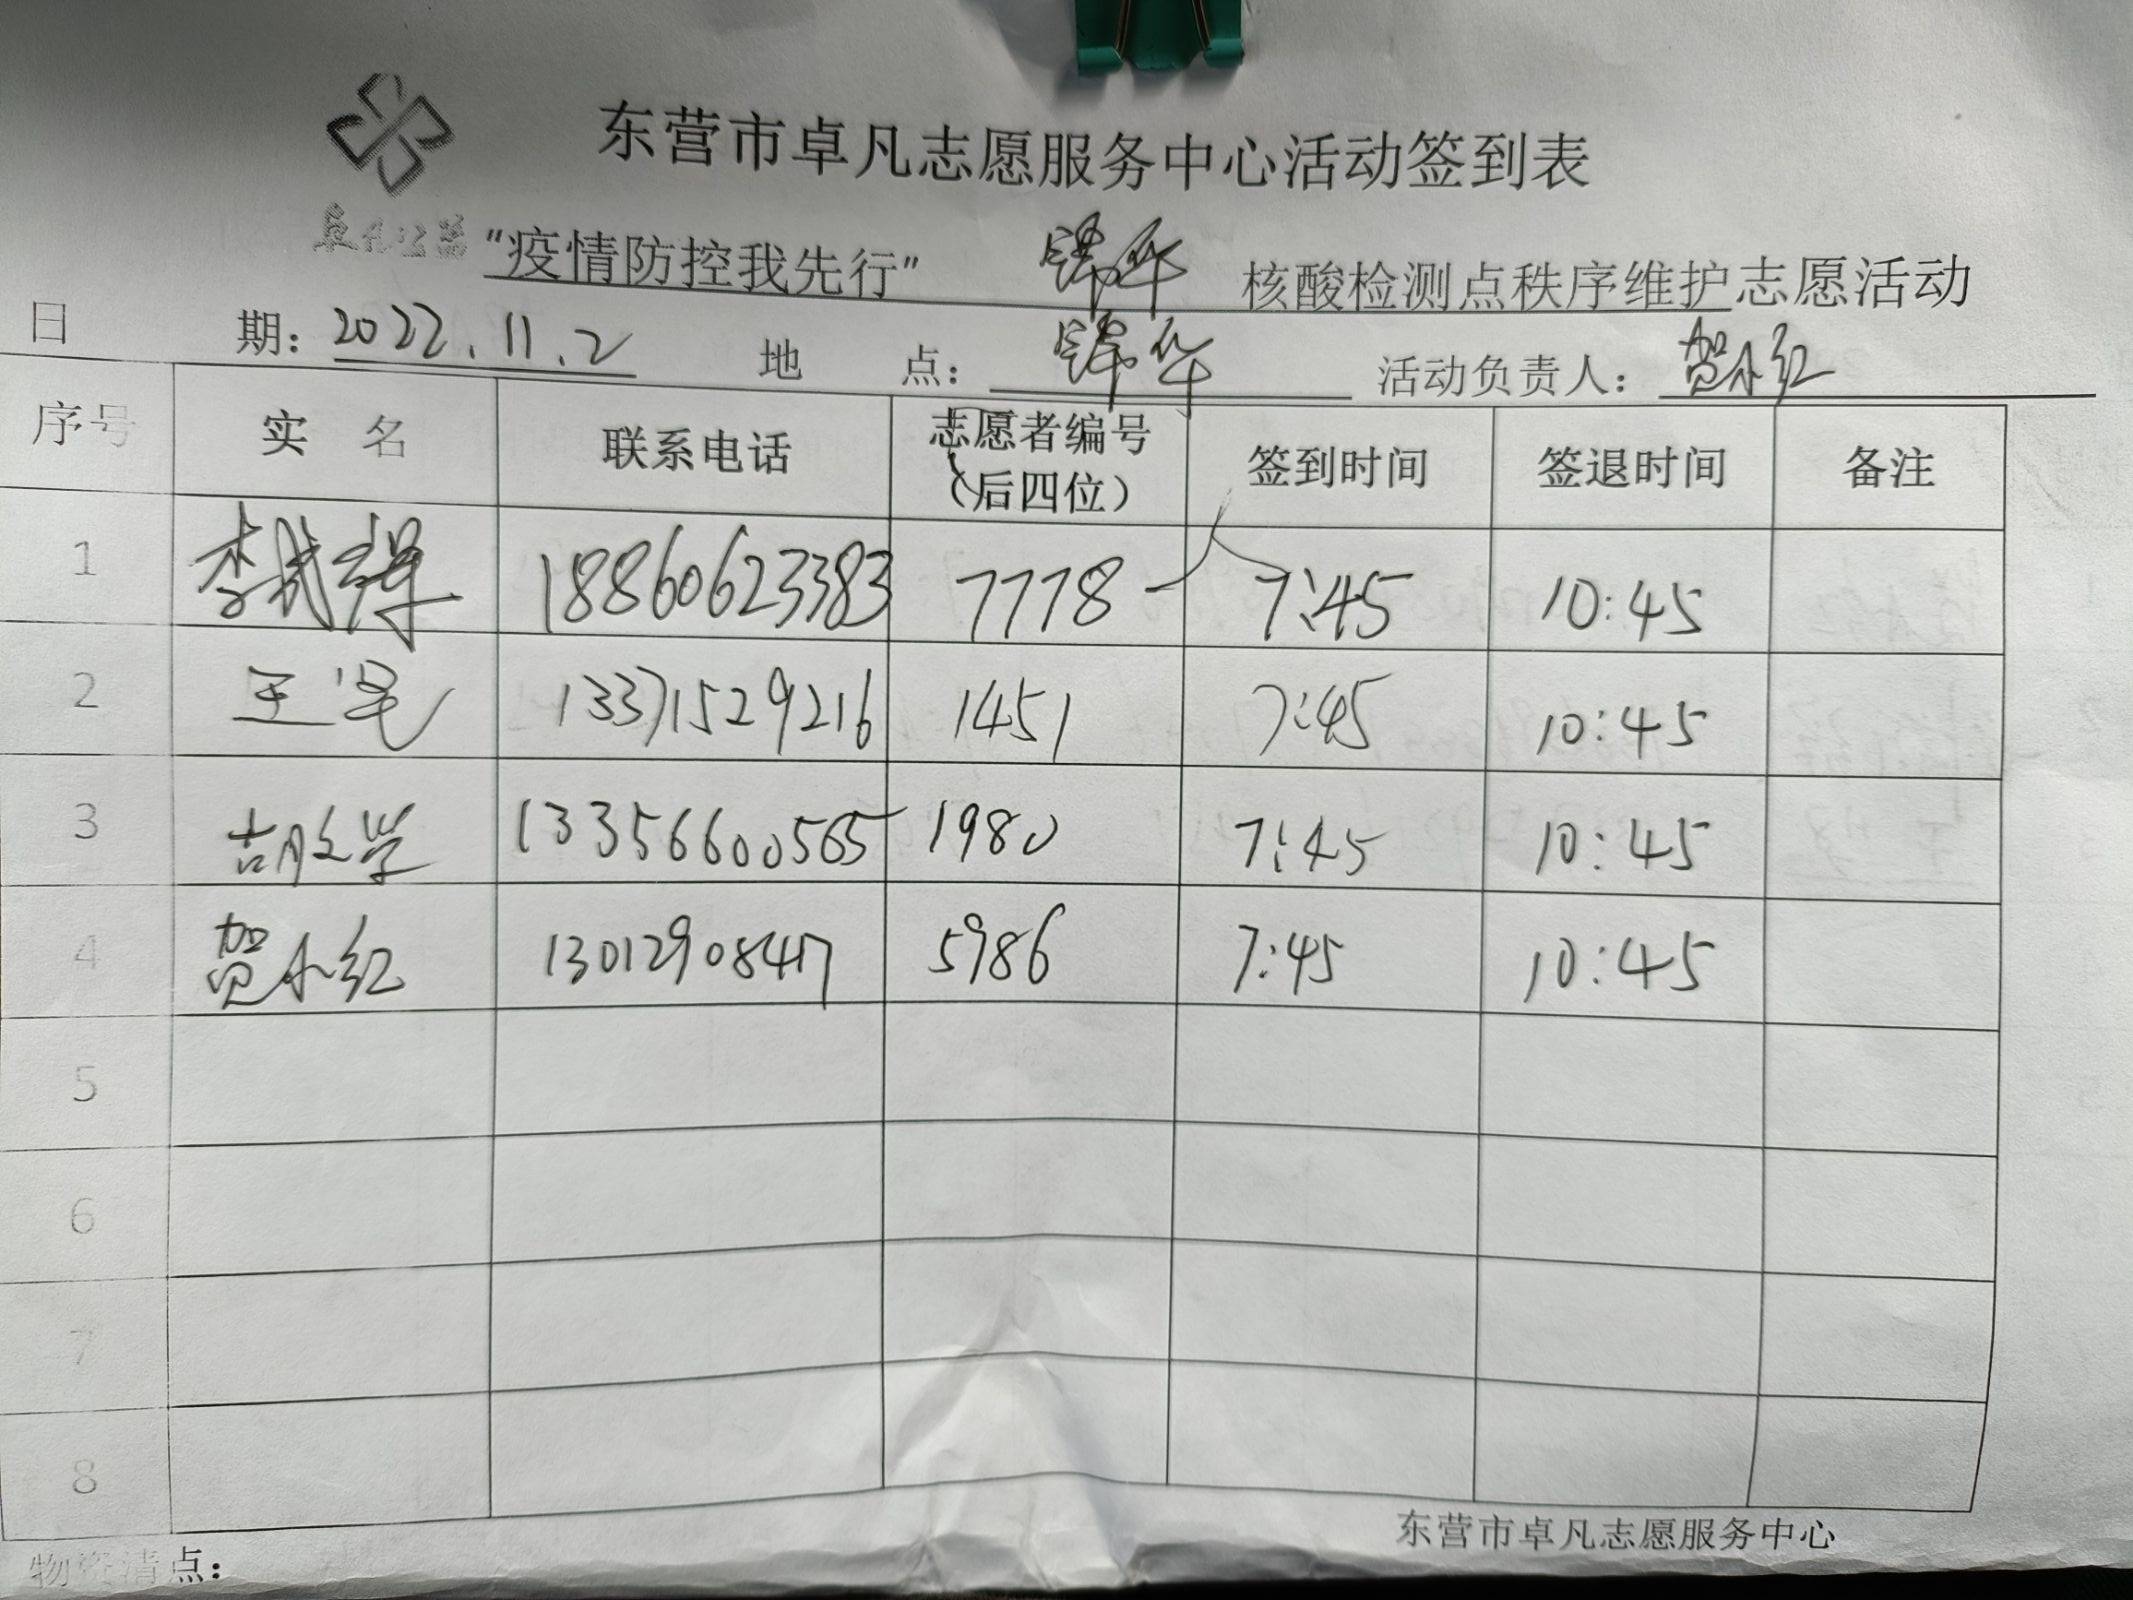 东营市卓凡志愿服务中心活动签到表
"疫情防控我先行" 锦华 核酸检测点秩序维护志愿活动
日 期：2022.11.2 地 点：锦华 活动负责人：贺小红
序号 实 名 联系电话 志愿者编号（后四位） 签到时间 签退时间 备注
1 李 18860623383 7778 7:45 10:45
2 王 13371529216 1451 7:45 10:45
3 胡文学 13356600565 1980 7:45 10:45
4 贺小红 13012908447 5986 7:45 10:45
5
6
7
8
东营市卓凡志愿服务中心
物资清点：